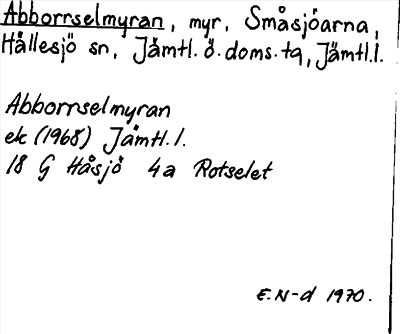 Abborrselmyran, myr, Småsjöarna,
Hållesjö sn, Jämtl. ö. doms. tg, Jämtl.l.
Abborrselmyran
ek (1968) Jämtl. l.
18 G Håsjö 4a Rotselet
E. N-d 1970.